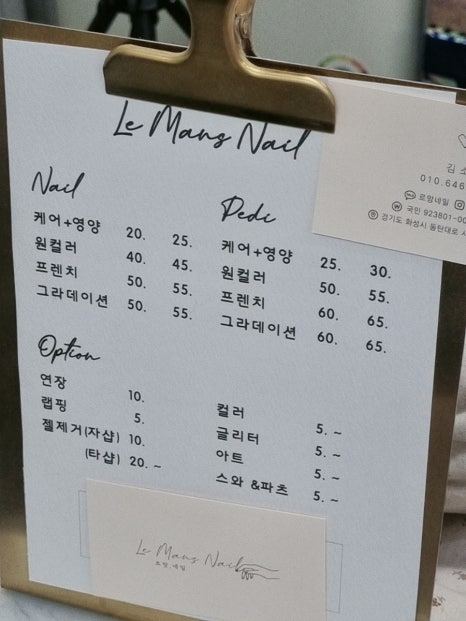 Le Mans Nail
Nail
케어+영양 20. 25.
원컬러 40. 45.
프렌치 50. 55.
그라데이션 50. 55.
Pedi
케어+영양 25. 30.
원컬러 50. 55.
프렌치 60. 65.
그라데이션 60. 65.
Option
연장 10.
랩핑 5.
젤제거(자샵) 10.
(타샵) 20. ~
컬러 5. ~
글리터 5. ~
아트 5. ~
스와 &파츠 5. ~
김
010.646
르망네일
국민 923801-00
경기도 화성시 동탄대로
Le Mans Nail
르망.네일